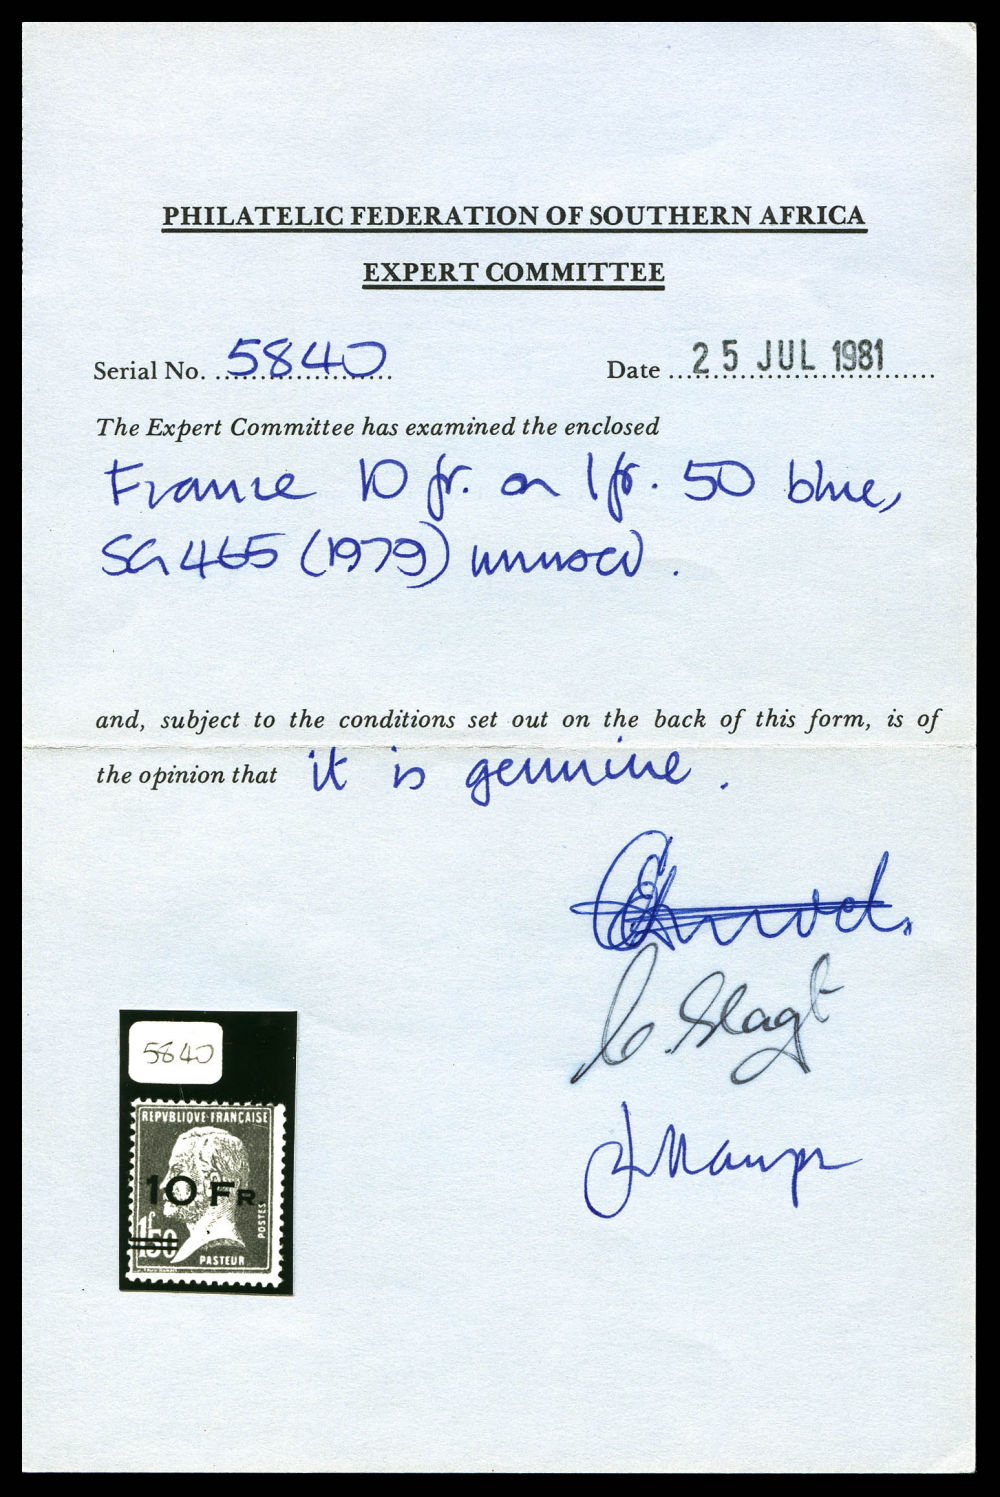 PHILATELIC FEDERATION OF SOUTHERN AFRICA
EXPERT COMMITTEE
Serial No. 5840
Date 25 JUL 1981
The Expert Committee has examined the enclosed
France 10 fr. on 1fr. 50 blue,
SG 465 (1979) unused.
and, subject to the conditions set out on the back of this form, is of
the opinion that it is genuine.
C. Slagt
5840
REPVBLIQVE FRANÇAISE
10 FR.
1f50
POSTES
PASTEUR